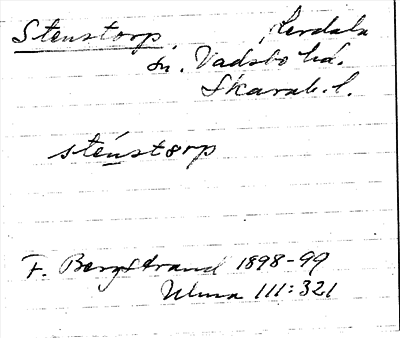 Stenstorp. Lerdala
sn. Vadsbo hd.
Skarab. l.
sténstorp
F. Bergstrand 1898-99
Ulma 111:321